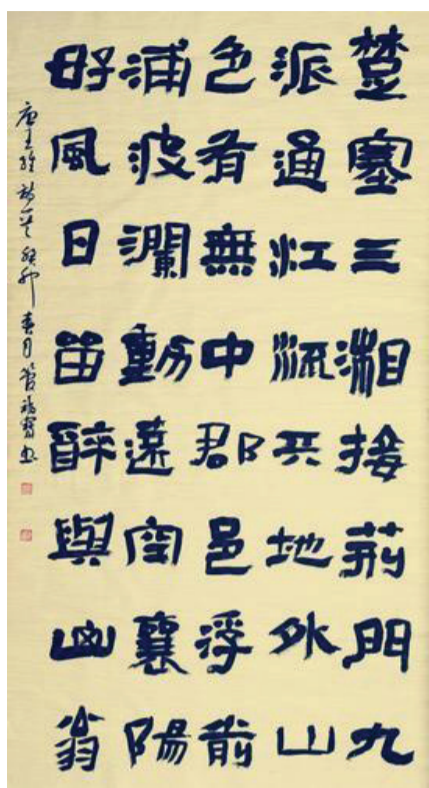 楚塞三湘接荊門九
派通江流天地外山
色有無中郡邑浮前
浦波瀾動遠空襄陽
好風日留醉與山翁
唐王維詩一首癸卯春月管福寶书